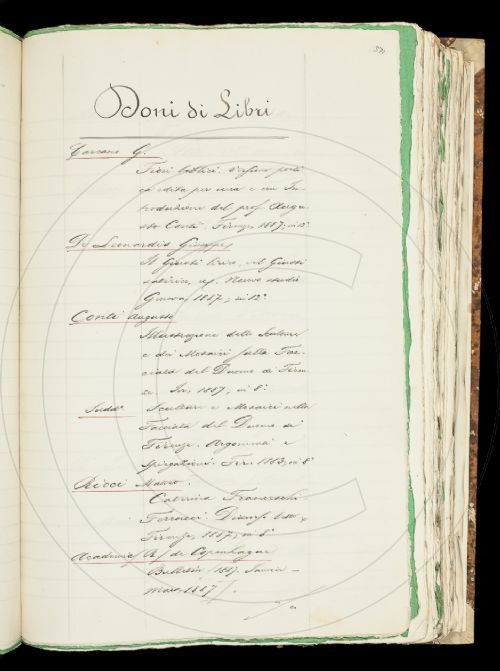 Doni di Libri
Carcano G.
Fiori biblici. Versione poeti
ca edita per cura e con In-
troduzione del prof. Augu-
sto Conti. Firenze, 1887; in 12°
De Leonardis Giuseppe
Il Giusti lirico, il Giusti
satirico, Nuovo studio
Genova, 1887; in 12°
Conti Augusto
Illustrazione delle Sculture
e dei Mosaici sulla Fac-
ciata del Duomo di Firen-
ze. Ivi, 1887; in 8°
Sudd°
Sculture e Mosaici nella
Facciata del Duomo di
Firenze. Argomenti e
spiegazioni. Ivi 1883; in 8°
Ricci Mauro.
Caterina Franceschi
Ferrucci
Firenze, 1887; in 8°
Academia R. de Copenhague
Bulletin 1887. Janvier -
Mars, 1887